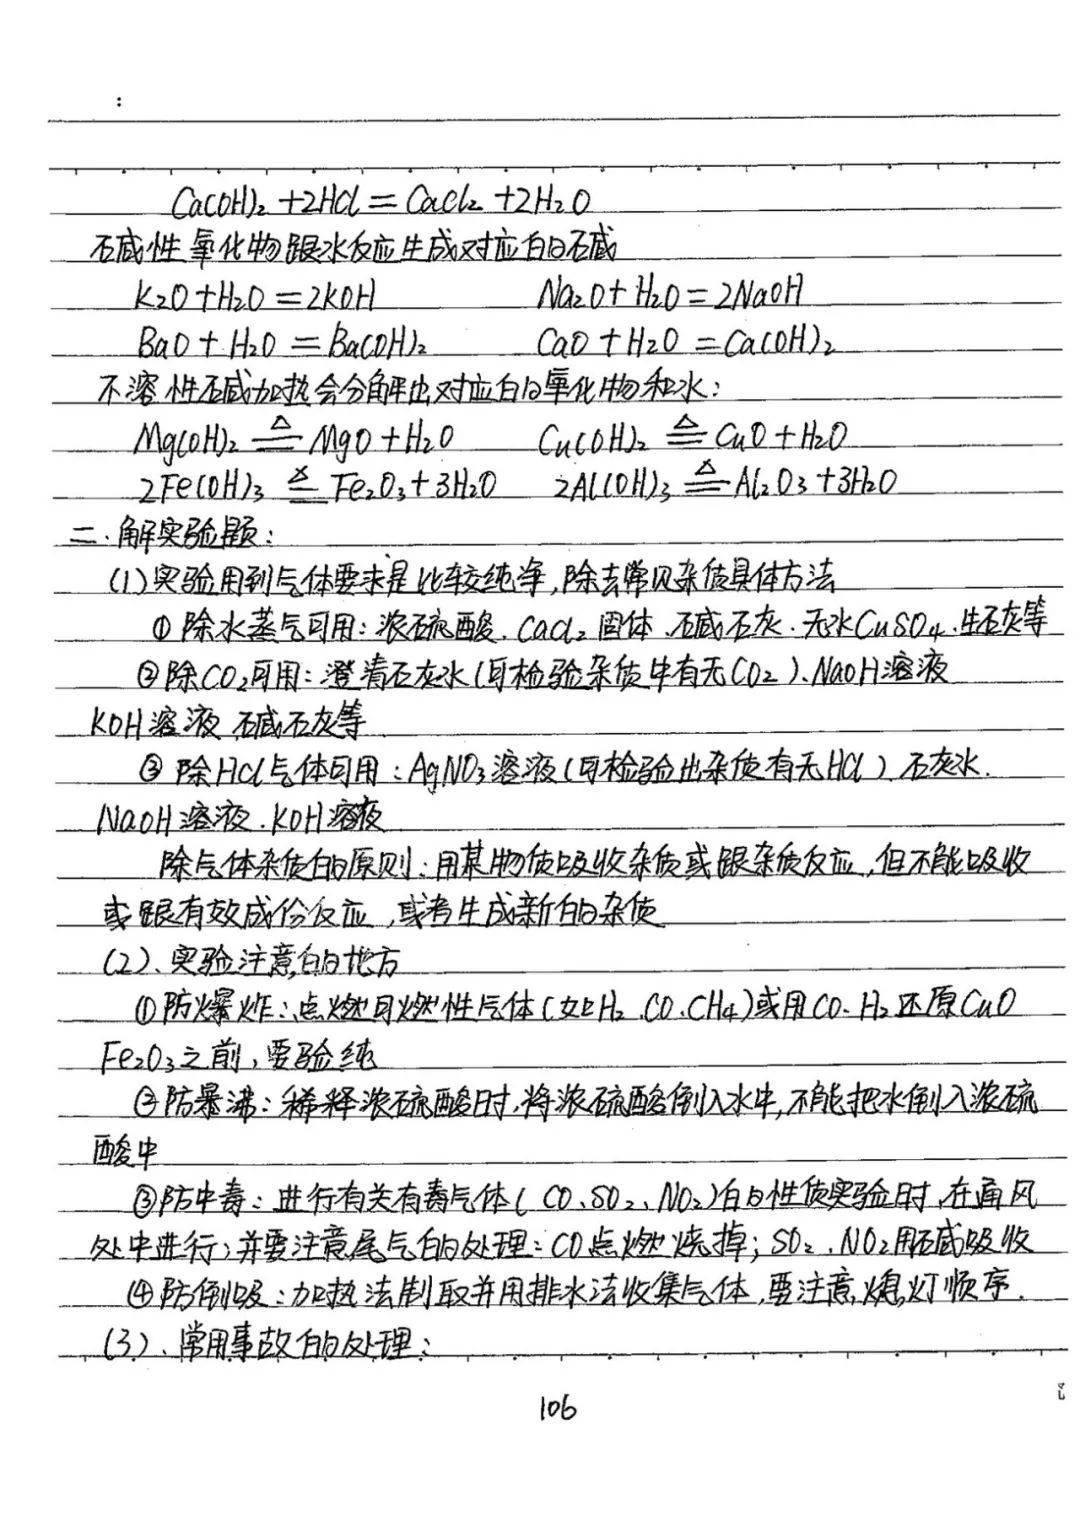 :
Ca(OH)₂+2HCl=CaCl₂+2H₂O
碱性氧化物跟水反应生成对应的碱
K₂O+H₂O=2KOH Na₂O+H₂O=2NaOH
BaO+H₂O=Ba(OH)₂ CaO+H₂O=Ca(OH)₂
不溶性碱加热会分解出对应的氧化物和水:
Mg(OH)₂≜MgO+H₂O Cu(OH)₂≜CuO+H₂O
2Fe(OH)₃≜Fe₂O₃+3H₂O 2Al(OH)₃≜Al₂O₃+3H₂O
二.解实验题:
(1)实验用到气体要求是比较纯净,除去常见杂质具体方法
①除水蒸气可用:浓硫酸.CaCl₂固体.碱石灰.无水CuSO₄.生石灰等
②除CO₂可用:澄清石灰水(可检验杂质中有无CO₂).NaOH溶液
KOH溶液 碱石灰等
③除HCl气体可用:AgNO₃溶液(可检验出杂质有无HCl)石灰水.
NaOH溶液.KOH溶液
除气体杂质的原则:用某物质吸收杂质或跟杂质反应,但不能吸收
或跟有效成份反应,或者生成新的杂质
(2)、实验注意的地方
①防爆炸:点燃可燃性气体(如H₂.CO.CH₄)或用CO.H₂还原CuO
Fe₂O₃之前,要验纯
②防暴沸:稀释浓硫酸时,将浓硫酸倒入水中,不能把水倒入浓硫
酸中
③防中毒:进行有关有毒气体(CO、SO₂、NO₂)的性质实验时,在通风
处中进行;并要注意尾气的处理:CO点燃烧掉;SO₂、NO₂用碱吸收
④防倒吸:加热法制取并用排水法收集气体,要注意熄灯顺序.
(3)、常用事故的处理:
106